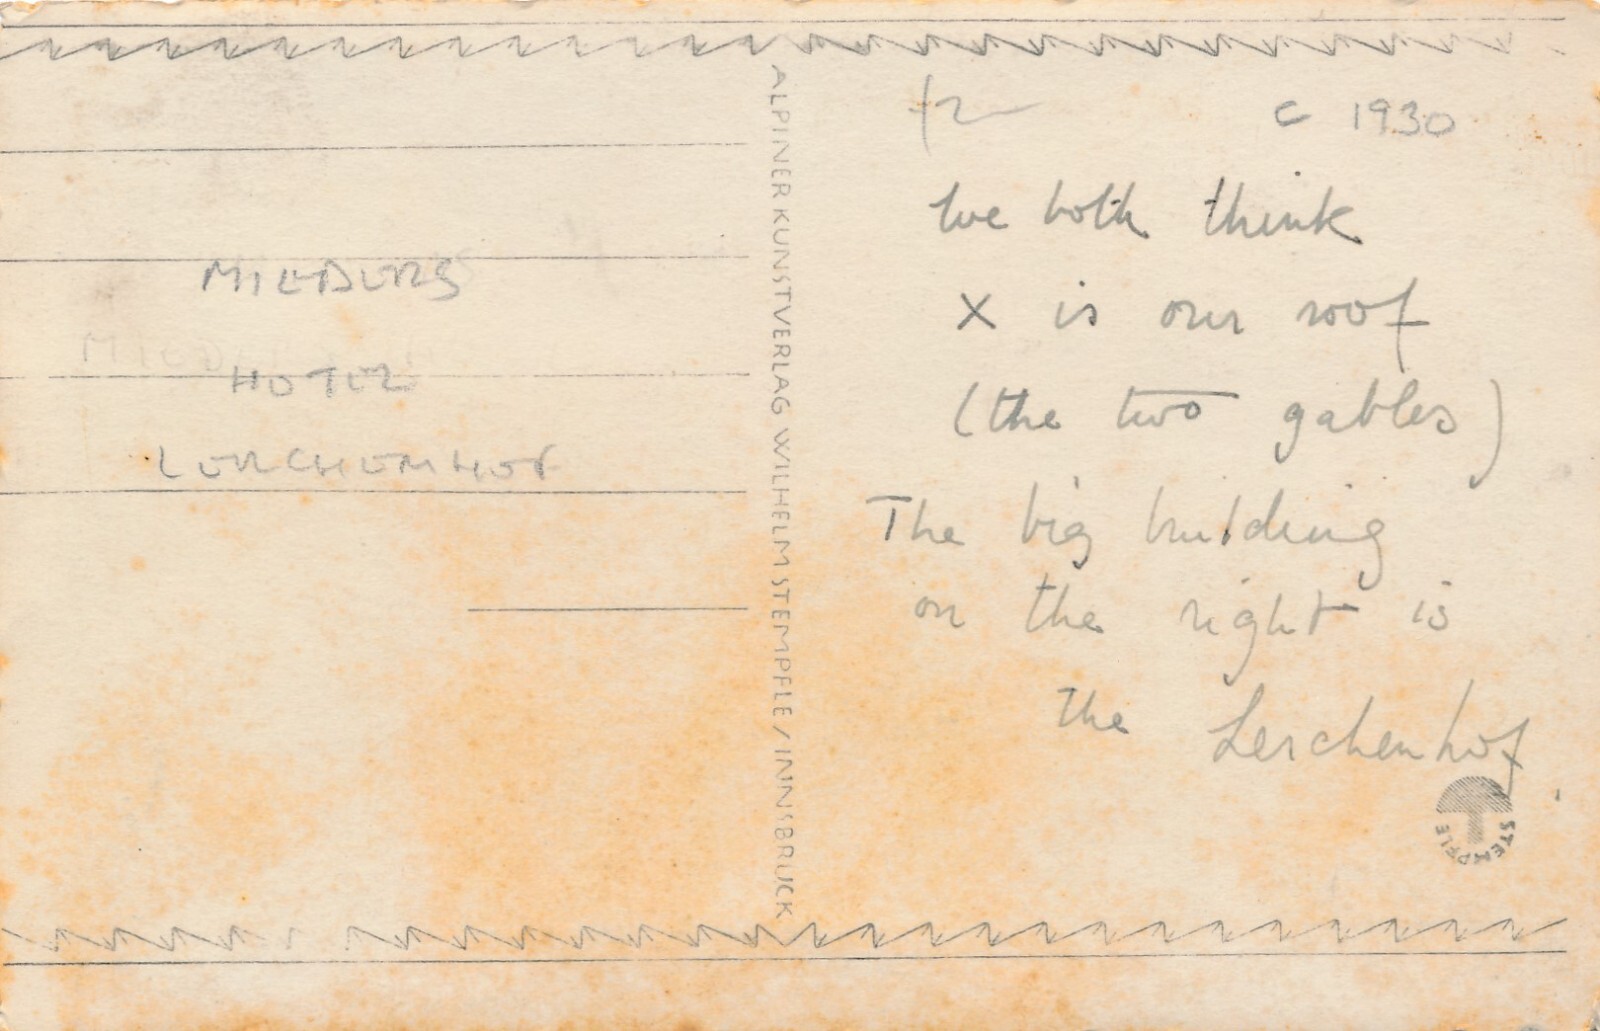 MIEDERS
HOTEL
LERCHENHOF
ALPINER KUNSTVERLAG WILHELM STEMPFLE / INNSBRUCK
c 1930
We both think
X is our roof
(the two gables)
The big building
on the right is
the Lerchenhof
STEMPFLE